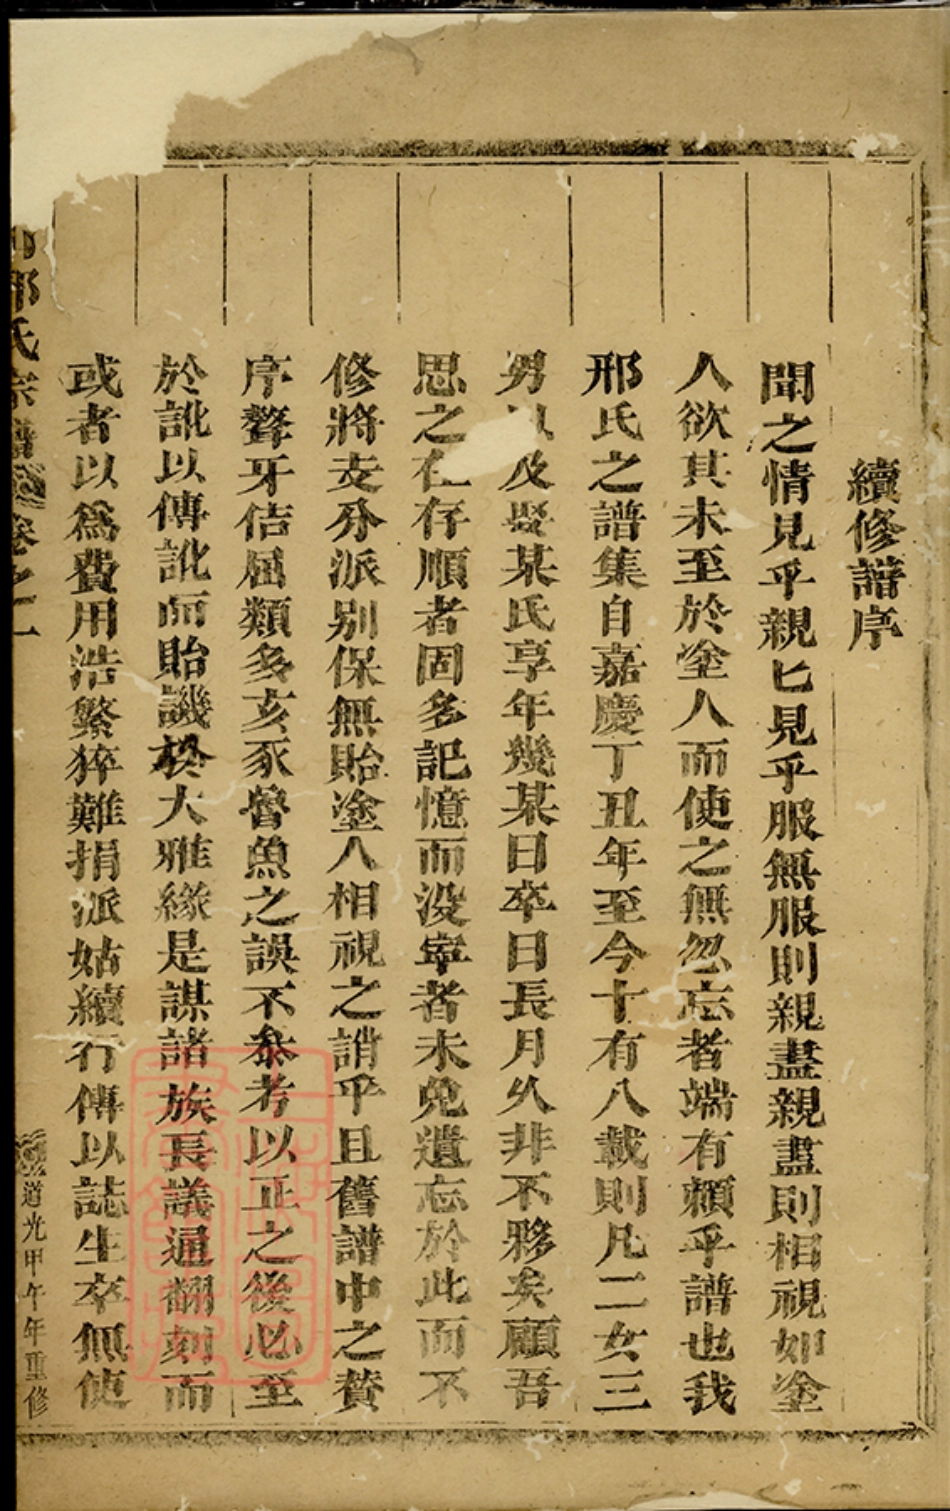 續修譜序
聞之情見乎親匕見乎服無服則親盡親盡則相視如塗
人欲其未至於塗人而使之無忽忘者端有賴乎譜也我
邢氏之譜集自嘉慶丁丑年至今十有八載則凡二女三
男以及娶某氏享年幾某日卒日長月久非不夥矣顧吾
思之在存順者固多記憶而没寧者未免遺忘於此而不
修將支分派别保無貽塗人相視之誚乎且舊譜中之贊
序聱牙佶屈類多亥豕魯魚之誤不叅考以正之後必至
於訛以傳訛而貽譏於大雅緣是謀諸族長議通翻刻而
或者以爲費用浩繁猝難捐派姑續行傳以誌生卒無使
氏宗譜 卷之一 道光甲午年重修